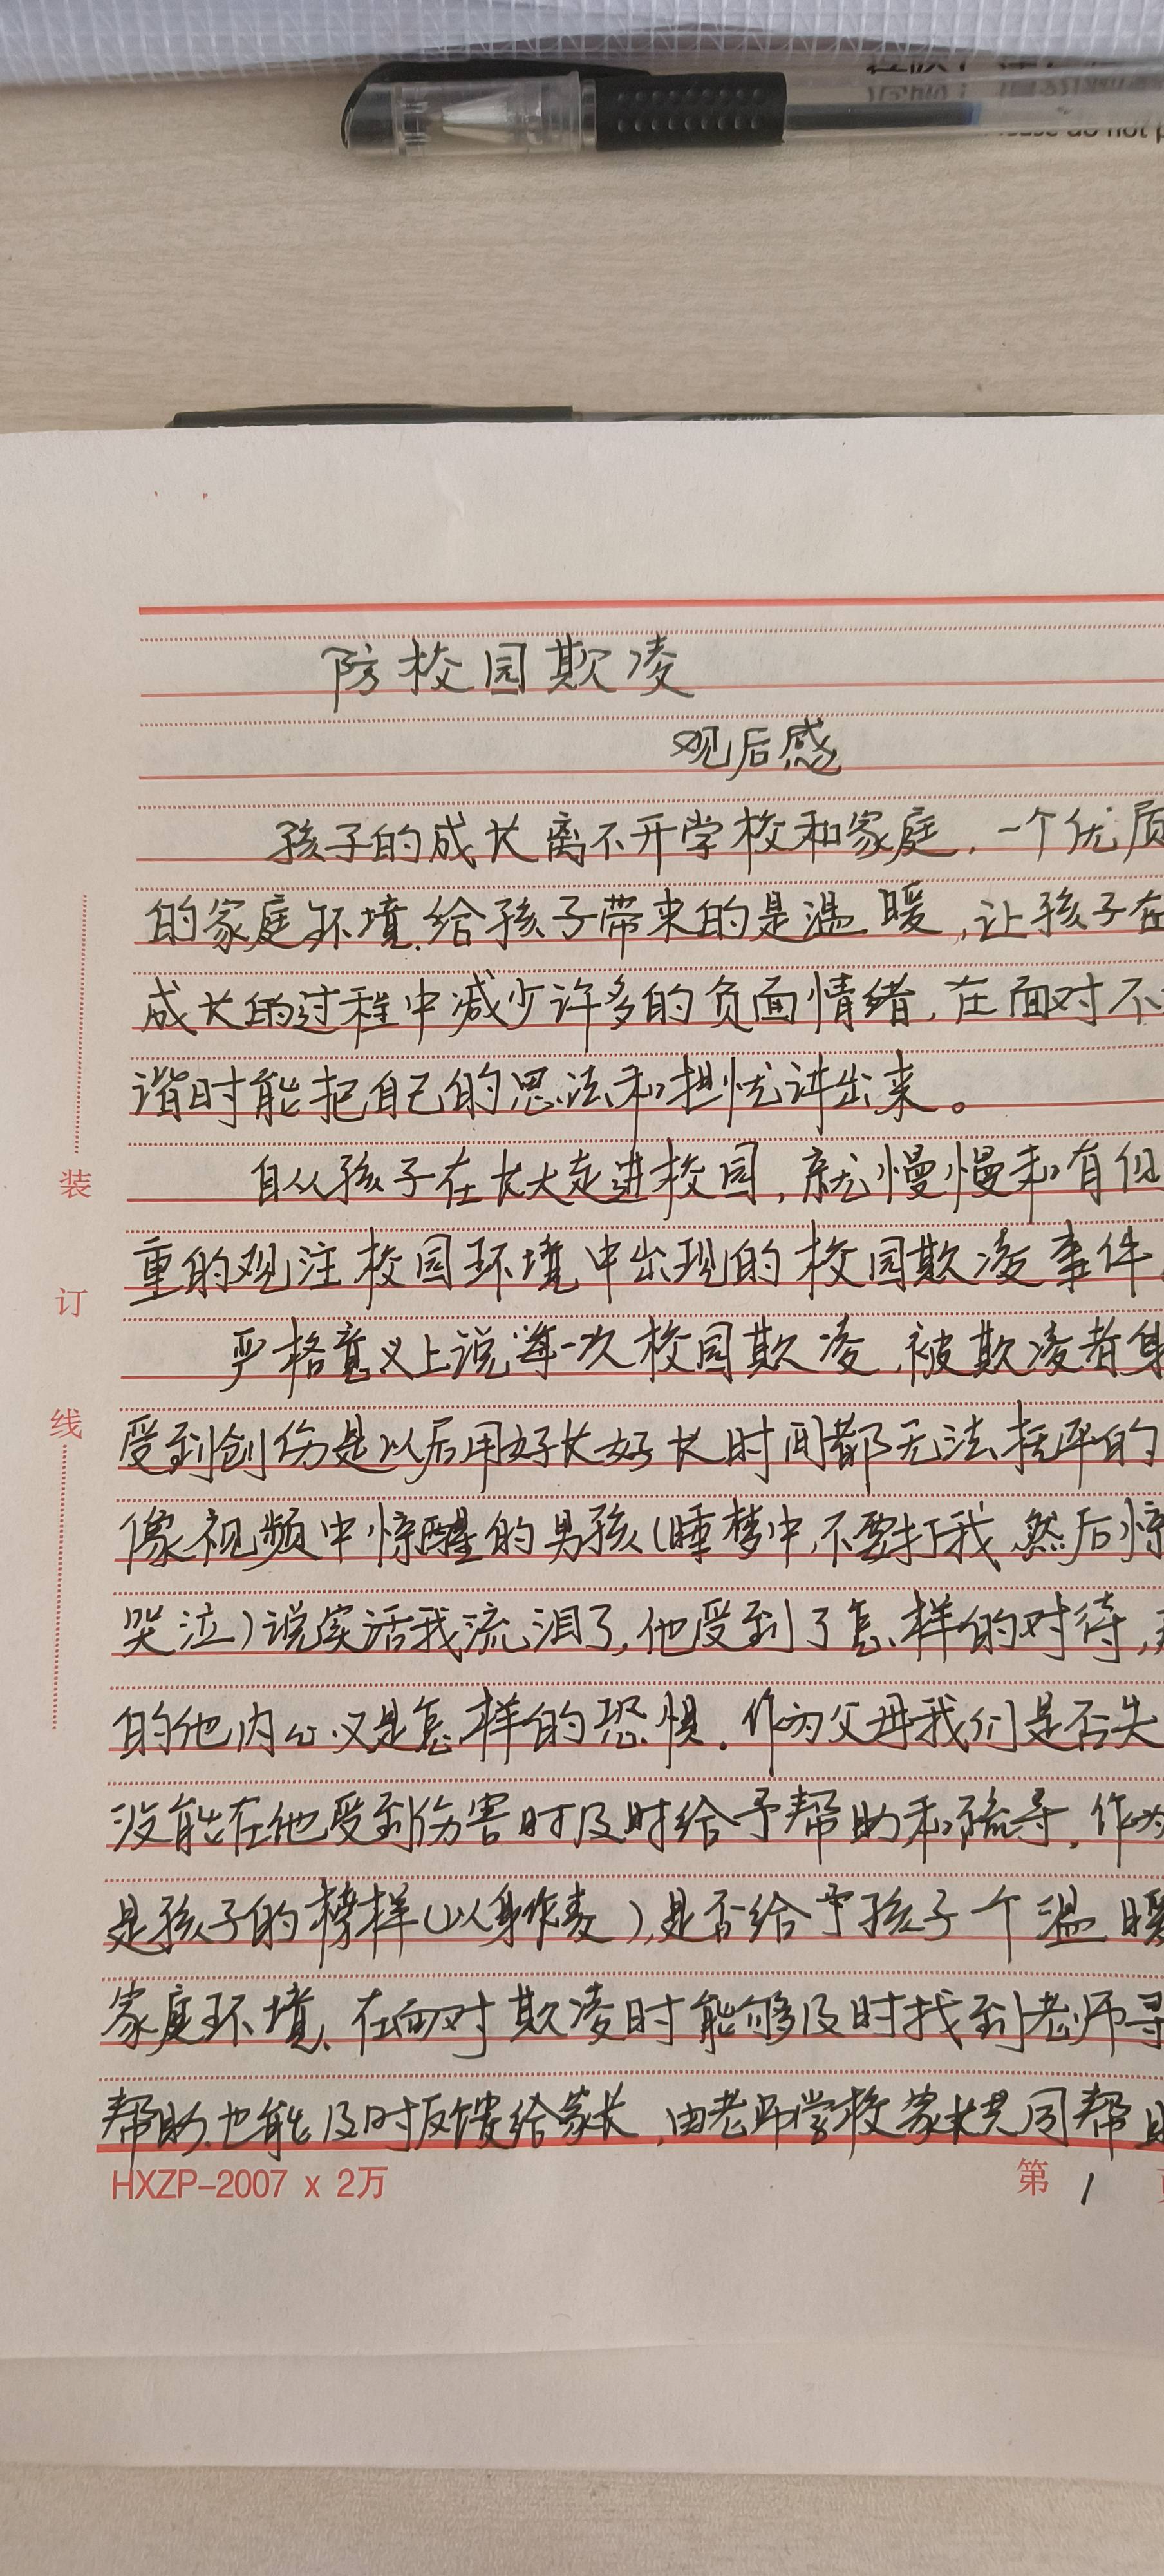 防校园欺凌
观后感
孩子的成长离不开学校和家庭，一个优质
的家庭环境.给孩子带来的是温暖,让孩子在
成长的过程中减少许多的负面情绪,在面对不
谐时能把自己的思法和担忧讲出来。
自从孩子在长大走进校园,就慢慢和有但
重的观注校园环境中出现的校园欺凌事件.
严格意义上说每一次校园欺凌,被欺凌者身
受到创伤是以后用好长好长时间都无法抚平的
像视频中惊醒的男孩(睡梦中,不要打我,然后惊
哭泣)说实话我流泪了,他受到了怎样的对待,
的他内心又是怎样的恐惧.作为父母我们是否失
没能在他受到伤害时及时给予帮助和疏导,作为
是孩子的榜样(以身作责),是否给予孩子个温暖
家庭环境、在面对欺凌时能够及时找到老师寻
帮助.也能及时反馈给家长,由老师学校家长共同帮助
装
订
线
HXZP-2007 x 2万
第 1